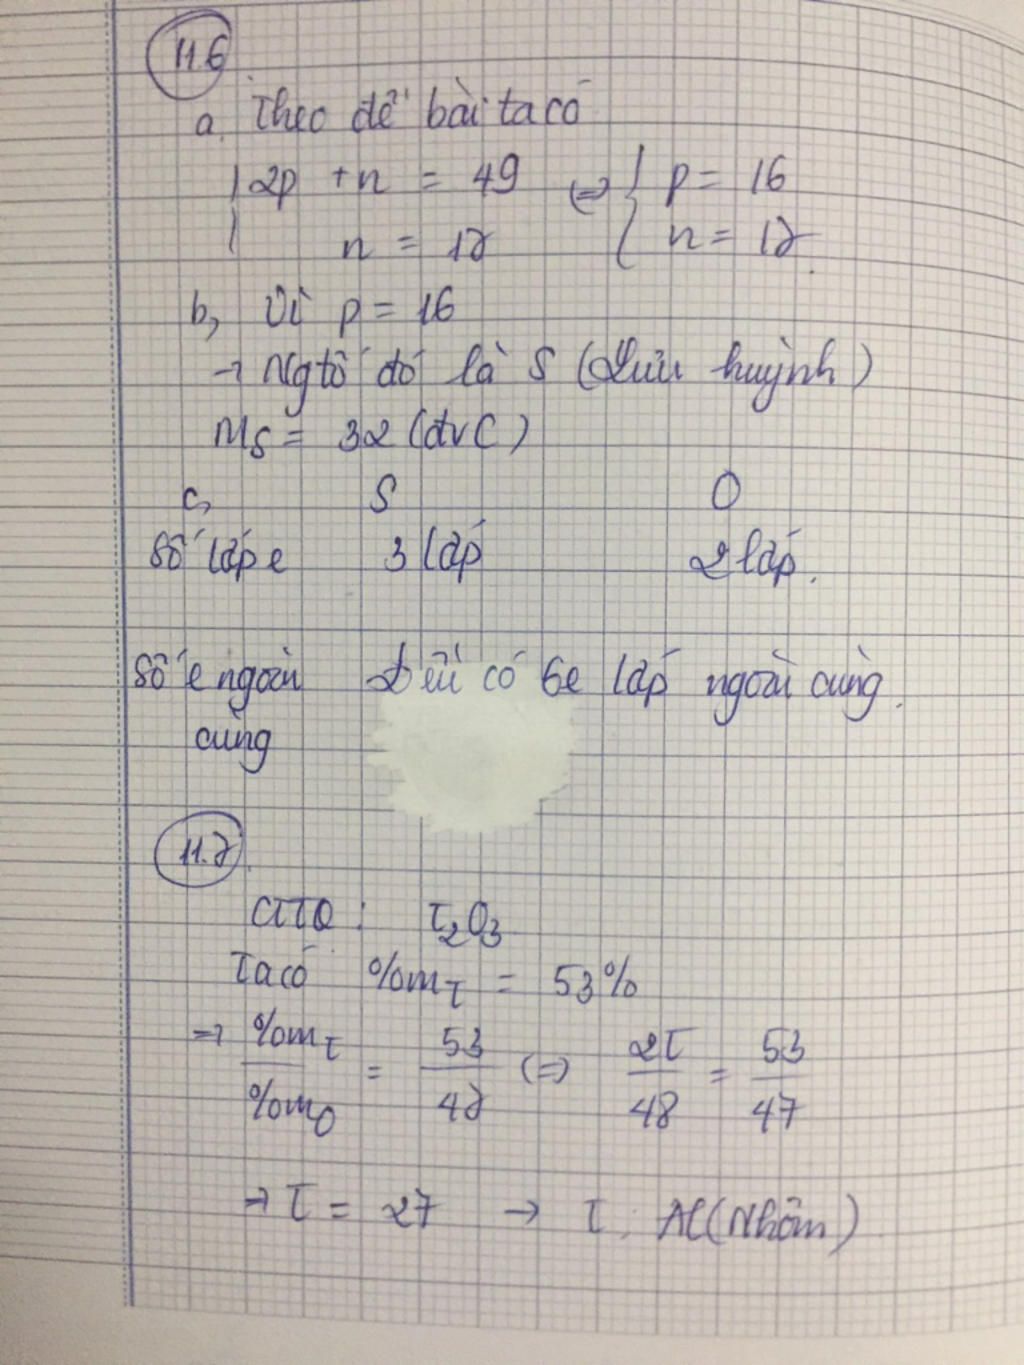 11.6
a, Theo đề bài ta có
2p + n = 49 <=> { p = 16
n = 17 { n = 17
b, Vì p = 16
→ Ngtố đó là S (Lưu huỳnh)
MS = 32 (đvC)
c, S O
Số lớp e 3 lớp 2 lớp.
Số e ngoài Đều có 6e lớp ngoài cùng.
cùng
11.7
CTTQ : T2O3
Ta có %mT = 53%
=> %mT / %mO = 53 / 47 (=) 2T / 48 = 53 / 47
→ T = 27 → T : Al (Nhôm)